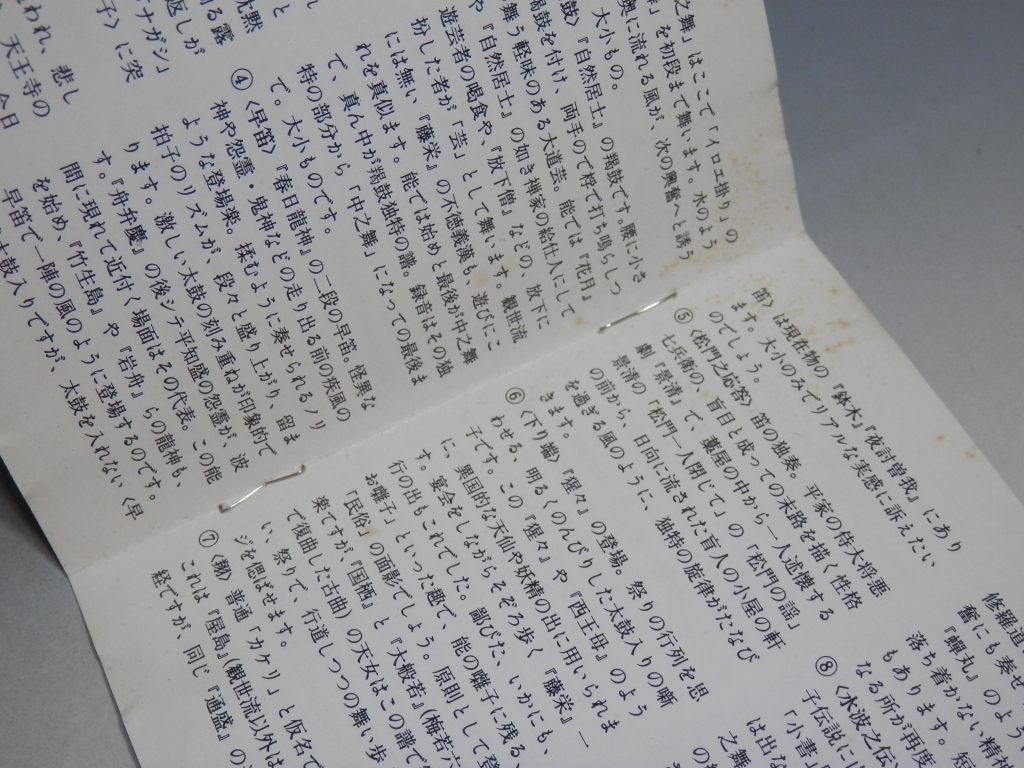 沈黙
る露
ナガシ」
返しが
子〉に突
われ、悲し
天王寺の
今日
之舞」はここで「イロエ掛り」の
舞」を初段まで舞います。水のよう
奥に流れる風が、次の興奮へと誘う
大小もの。
鼓〉『自然居士』の羯鼓です。腰に小さ
羯鼓を付け、両手ので桴で打ち鳴らしつ
舞う軽味のある大道芸。能では『花月』
や『自然居士』の如き禅家の給仕人にして
遊芸者の喝食や、『放下僧』などの、放下に
扮した者が「芸」として舞います。観世流
には無い『藤栄』の不徳義漢も、遊びにこ
れを真似ます。能では始めと最後が中之舞
で、真ん中が羯鼓独特の譜。録音はその独
特の部分から「中之舞」になっての最後ま
で。大小ものです。
④〈早笛〉『春日龍神』の二段の早笛。怪異な
神や怨霊・鬼神などの走り出る前の疾風の
ような登場楽。揉むように奏せられるノリ
拍子のリズムが、段々と盛り上がり、留ま
ります。激しい太鼓の刻み重ねが印象的で
す。『舟弁慶』の後シテ平知盛の怨霊が、波
間に現れて近付く場面はその代表。この能
を始め、『竹生島』や『岩舟』らの龍神も、
早笛で一陣の風のように登場するのです。
太鼓入りですが、太鼓を入れない〈早
笛〉は現在物の『鉢木』『夜討曽我』にあり
ます。大小のみでリアルな実感に訴えたい
のでしょう。
⑤〈松門之応答〉笛の独奏。平家の侍大将悪
七兵衛の、盲目と成っての末路を描く性格
劇『景清』で、藁屋の中から一人述懐する
景清の「松門一人閉じて」の「松門の謡」
の前から、日向に流された盲人の小屋の軒
を過ぎる風のように、独特の旋律がたなび
きます。
⑥〈下り端〉『猩々』の登場。祭りの行列を思
わせる、明るくのんびりした太鼓入りの囃
子です。この『猩々』や『西王母』のよう
に、異国的な天仙や妖精の出に用いられま
す。宴会をしながらそぞろ歩く『藤栄』一
行の出もこれでした。鄙びた、いかにも、
お囃子」といった趣で、能の囃子に残る、
「民俗」の面影でしょう。原則として登
楽ですが、『国栖』と『大般若』(梅若六
で復曲した古曲)の天女はこの譜で
い、祭りで、行道しつつの舞い歩
ジを偲ばせます。
⑦〈翔〉普通「カケリ」と仮名で
これは『屋島』(観世流以外は
経ですが、同じ『通盛』の
修羅道
奮にも奏せ
『蝉丸』のよう
落ち着かない精神
もあります。短
なる所が再度
⑧〈水波之伝
子伝説に
「小書」
は出な
之舞